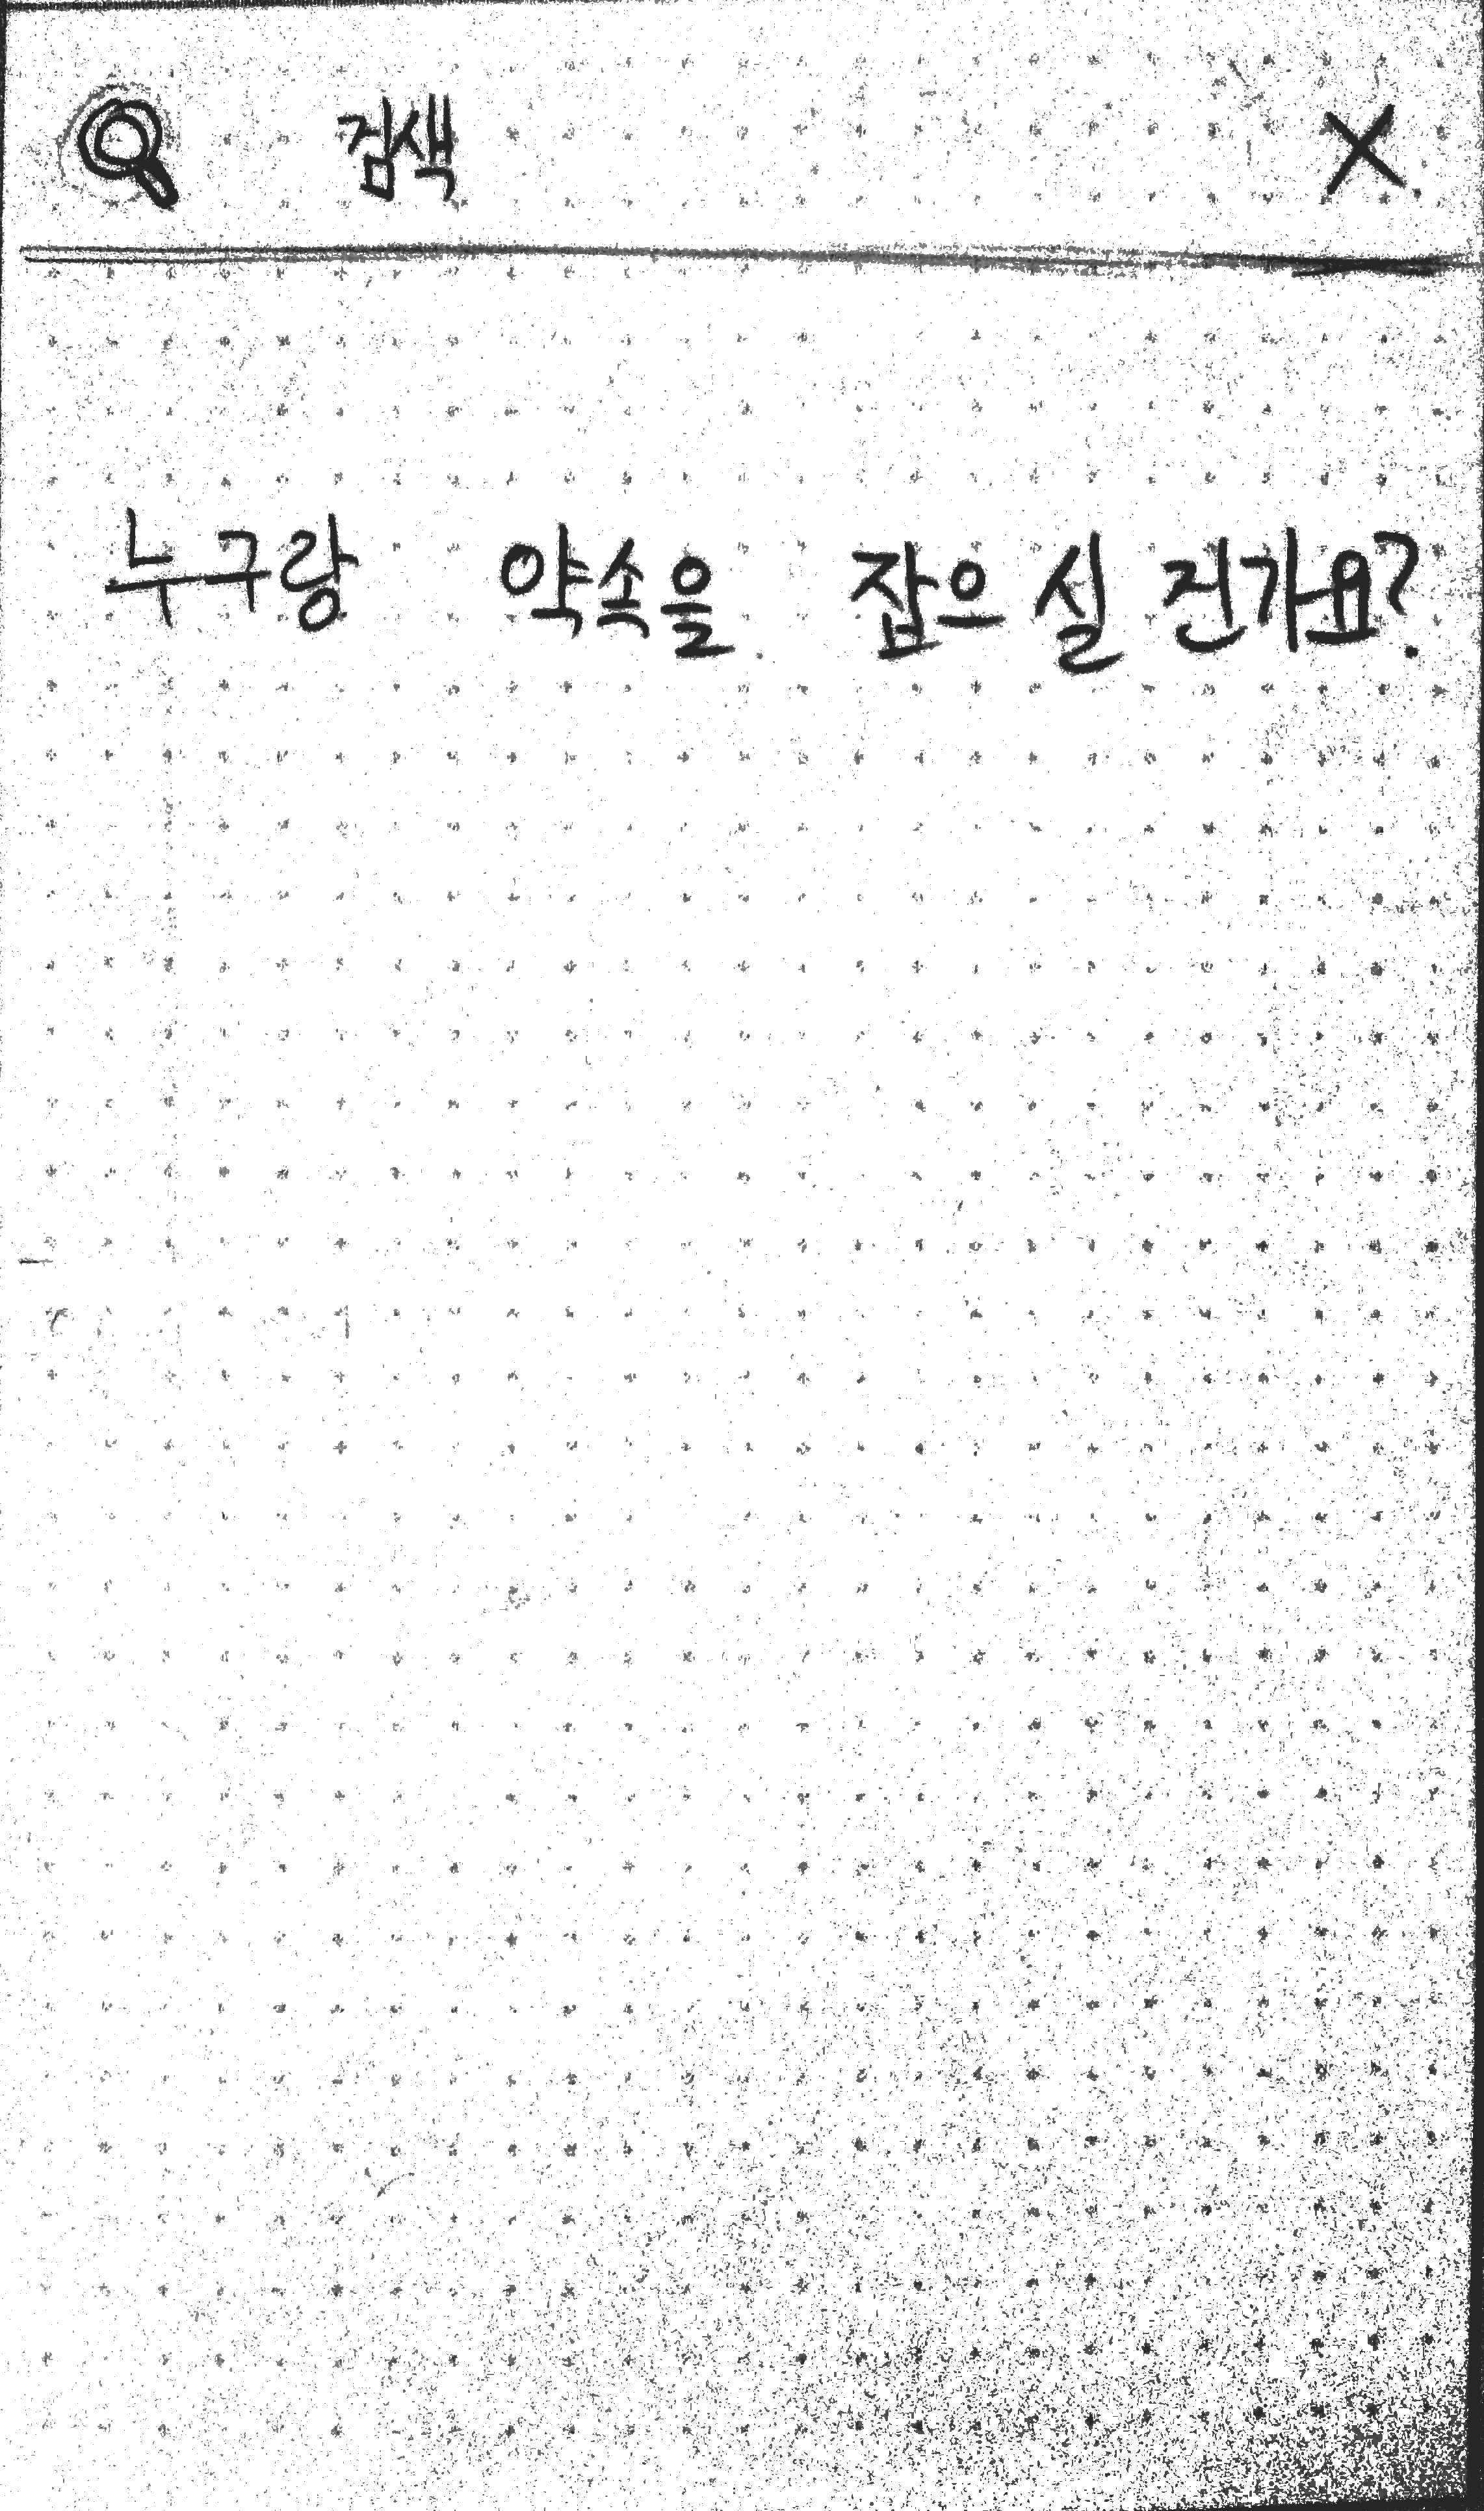 검색 X
누구랑 약속을 잡으실 건가요?